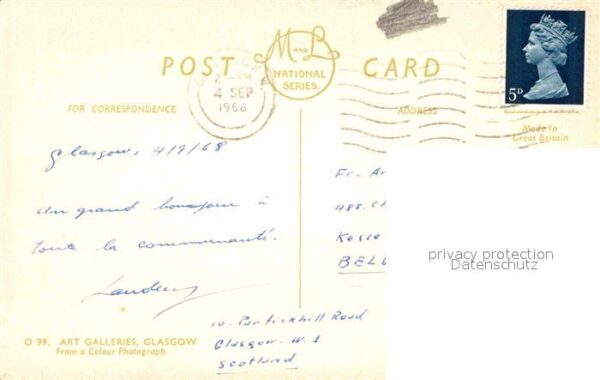 POST CARD
M AND L
NATIONAL
SERIES.
2 - PM
4 SEP
1968
5D
FOR CORRESPONDENCE
ADDRESS
Made in
Great Britain
Glasgow, 4/9/68
Un grand bonjour à
toute la communauté.
Fr.
488.
BEL
privacy protection
Datenschutz
10. Partickhill Road
Glasgow. W.1
Scotland
O 99. ART GALLERIES, GLASGOW
From a Colour Photograph